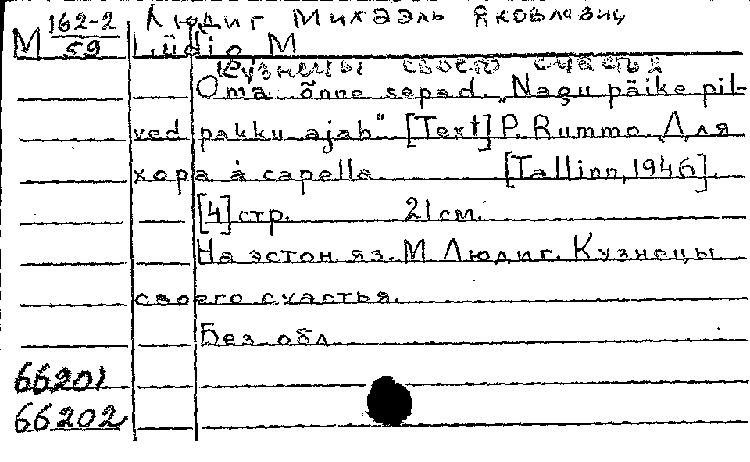 Людиг Михаэль Яковлевич
М 162-2/59 Lüdig M
Кузнецы своего счастья
Oma õnne sepad. „Nagu päike pil-
ved pakku ajab" [Text] P. Rummo. Для
хора à capella. [Tallinn, 1946].
[4] стр. 21 см.
На эстон. яз. М. Людиг. Кузнецы
своего счастья.
Без обл.
66201
66202